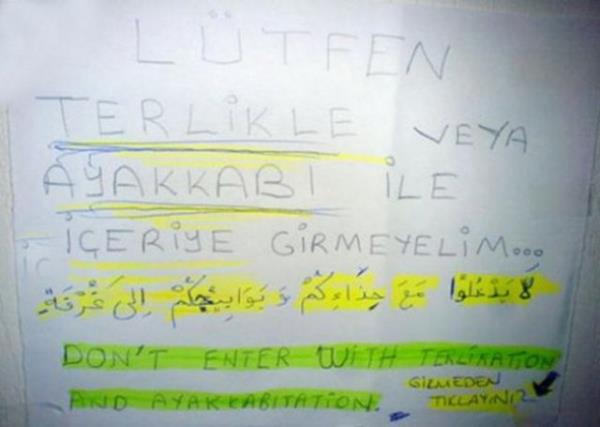 LÜTFEN
TERLİKLE VEYA
AYAKKABI İLE
İÇERİYE GİRMEYELİM...
لَا يَدْخُلُوا مَعَ حِذَاءِكُمْ وَ بَوَابِيجِكُمْ اِلىَ غُرْفَةِ
DON'T ENTER WITH TERLIKATION
AND AYAKKABITATION.
GİRMEDEN
TIKLAYINIZ